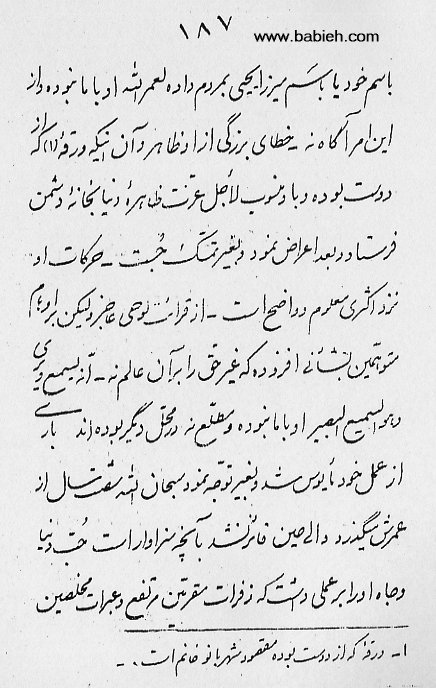 ۱۸۷
www.babieh.com
باسم خود یا باسم میرزا یحیی بمردم داده لعمرالله او با ما نبوده و از
این امر آگاه نه ـ خطای بزرگی از او ظاهر و آن اینکه ورقهٔ (۱) که از
دوست بوده و باو منسوب لأجل عزت ظاهرهٔ دنیا بخانهٔ دشمن
فرستاد و بعد اعراض نمود و بغیر تمسک جست ـ حرکات او
نزد اکثری معلوم و واضح است ـ از قرائت لوحی عاجز ولیکن بر اوهام
متوهمین بشأنی افزوده که غیر حق را بر آن عالم نه ـ انه یسمع و یری
و هو السمیع البصیر او با ما نبوده و مطلع نه در محل دیگر بوده‌اند باری
از عمل خود مأیوس شد و بغیر توجه نمود سبحان الله شصت سال از
عمرش میگذرد و الی حین فائز نشد بآنچه سزاوار است حب دنیا
و جاه او را بر عملی داشت که زفرات مقربین مرتفع و عبرات مخلصین
۱ـ ورقهٔ که از دوست بوده مقصود شهربانو خانم است. ـ